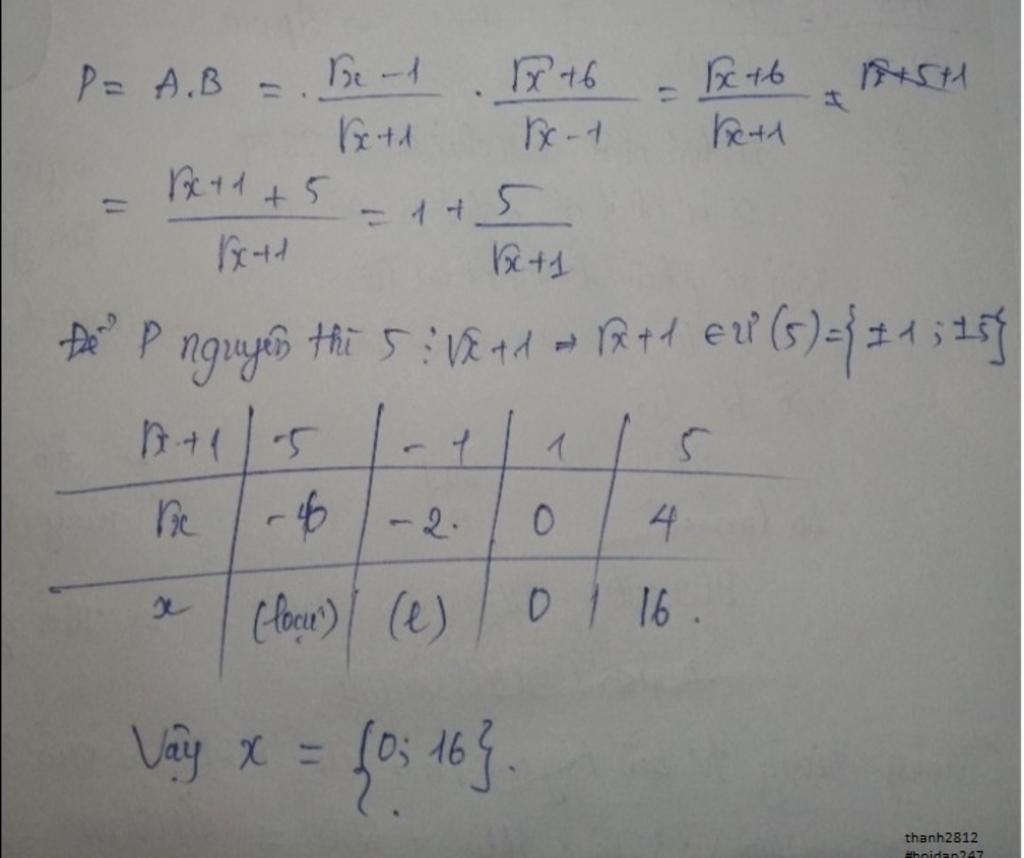 P = A.B = . √x - 1 / √x + 1 . √x + 6 / √x - 1 = √x + 6 / √x + 1 = √x + 5 + 1
= √x + 1 + 5 / √x + 1 = 1 + 5 / √x + 1
Để P nguyên thì 5 ⋮ √x + 1 ⇒ √x + 1 ∈ Ư (5) = {±1 ; ±5}
√x + 1 | -5 | -1 | 1 | 5
√x | -6 | -2. | 0 | 4
x | (loại) | (l) | 0 | 16.
Vậy x = {0; 16}.
thanh2812
#hoidap247